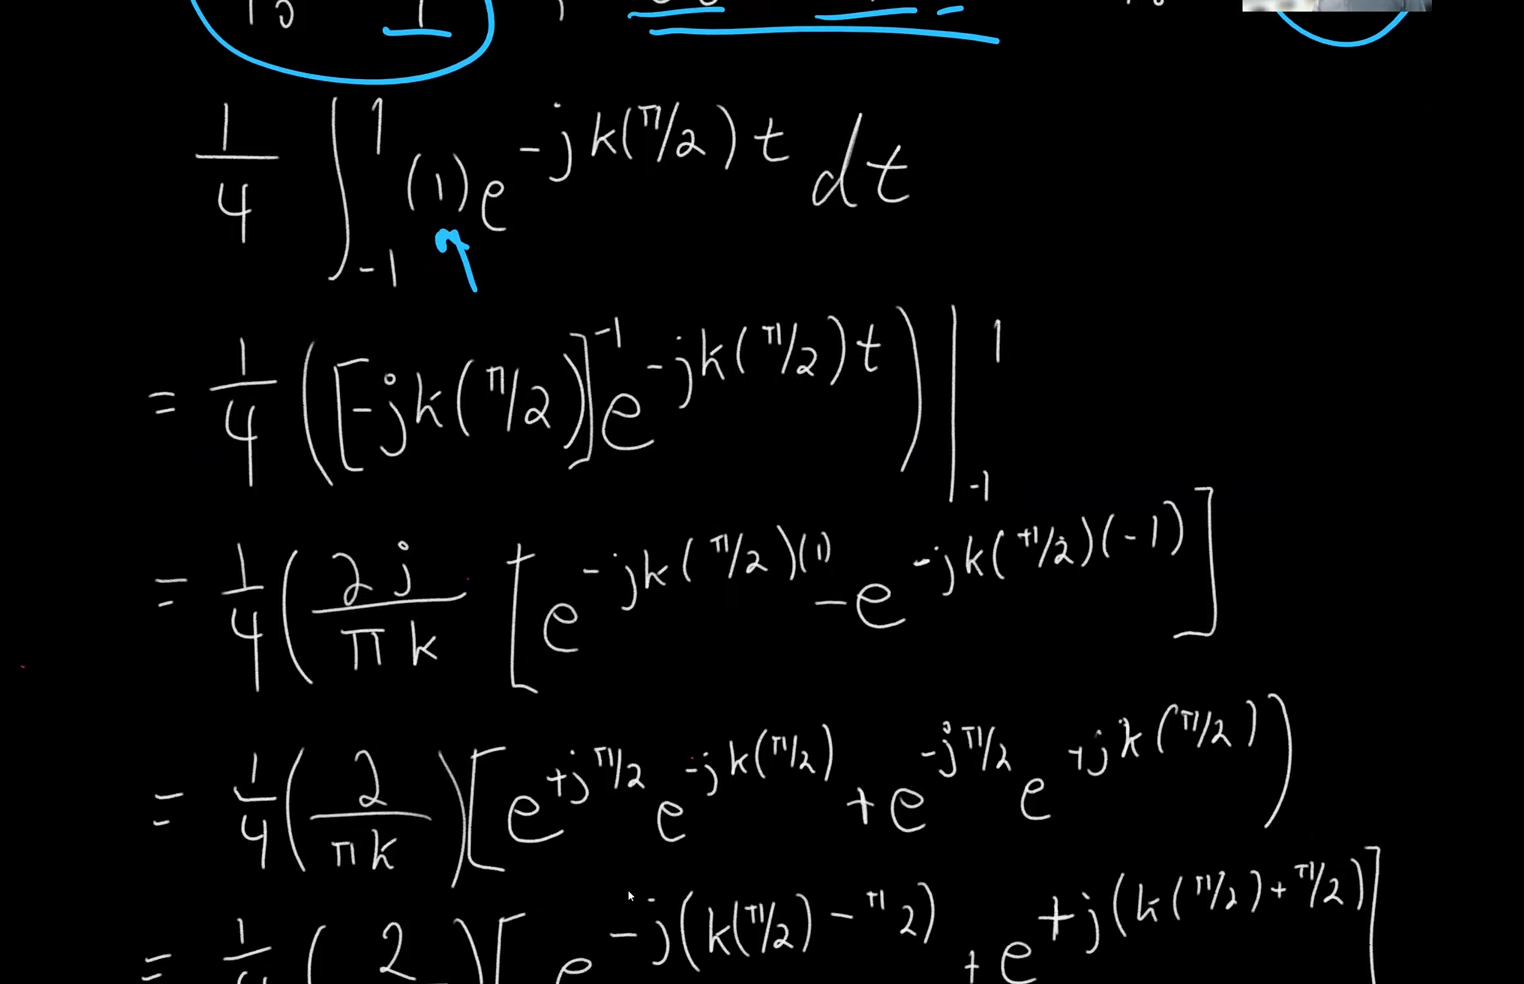 1/4 ∫_{-1}^{1} (1)e^{-jk(π/2)t} dt
= 1/4 ([-jk(π/2)]^{-1} e^{-jk(π/2)t}) |_{-1}^{1}
= 1/4 (2j/πk [e^{-jk(π/2)(1)} - e^{-jk(π/2)(-1)}]
= 1/4 (2/πk) [e^{+jπ/2} e^{-jk(π/2)} + e^{-jπ/2} e^{+jk(π/2)})
= 1/ (2 ) [e^{-j(k(π/2) - π 2)} + e^{+j(k(π/2) + π/2)}]